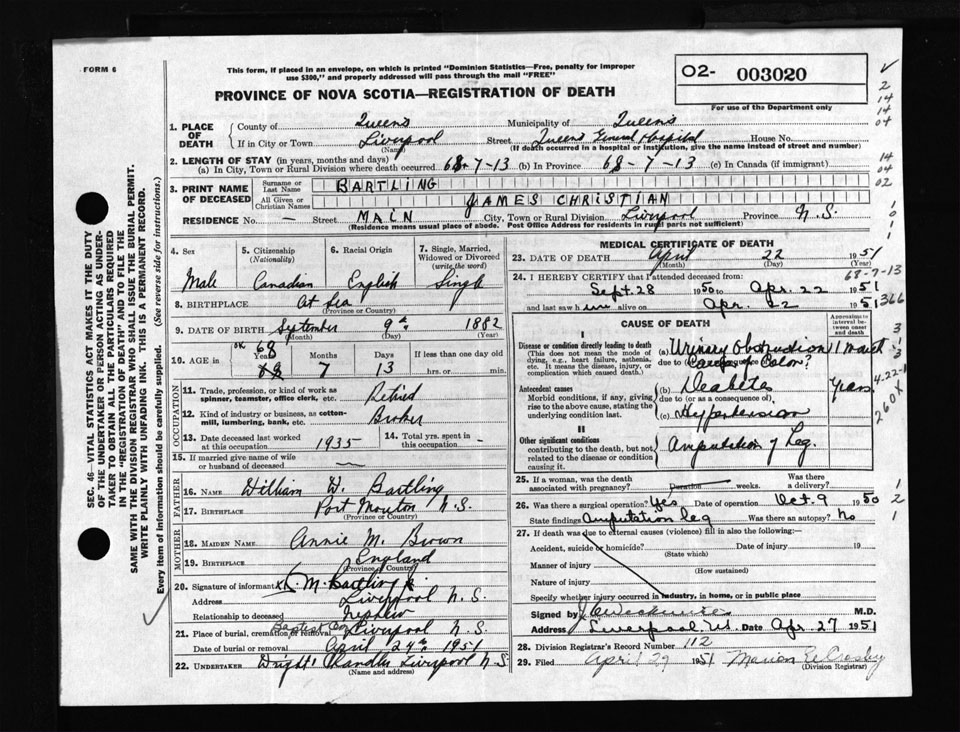 FORM 6
This form, if placed in an envelope, on which is printed "Dominion Statistics—Free, penalty for improper
use $300," and properly addressed will pass through the mail "FREE"
PROVINCE OF NOVA SCOTIA—REGISTRATION OF DEATH
O2- 003020
For use of the Department only
✓
2
14
14
04
14
04
02
1. PLACE OF DEATH County of Queens Municipality of Queens
If in City or Town Liverpool Street Queens General Hospital House No.
(Name) (If death occurred in a hospital or institution, give the name instead of street and number)
2. LENGTH OF STAY (in years, months and days)
(a) In City, Town or Rural Division where death occurred 68-7-13 (b) In Province 68-7-13 (c) In Canada (if immigrant)
3. PRINT NAME OF DECEASED Surname or Last Name BARTLING
All Given or Christian Names JAMES CHRISTIAN
RESIDENCE No. — Street MAIN City, Town or Rural Division Liverpool Province N.S.
(Residence means usual place of abode. Post Office Address for residents in rural parts not sufficient)
4. Sex 5. Citizenship (Nationality) 6. Racial Origin 7. Single, Married, Widowed or Divorced (write the word)
Male Canadian English Single
8. BIRTHPLACE At Sea
(Province or Country)
9. DATE OF BIRTH September 9th 1882
(Month) (Day) (Year)
10. AGE in OK 68 Years Months Days If less than one day
68 7 13 hrs. or min.
OCCUPATION
11. Trade, profession, or kind of work as spinner, teamster, office clerk, etc. Retired
12. Kind of industry or business, as cotton-mill, lumbering, bank, etc. Broker
13. Date deceased last worked at this occupation 1935 14. Total yrs. spent in this occupation –
15. If married give name of wife or husband of deceased —
FATHER
16. NAME William W. Bartling
17. BIRTHPLACE Port Mouton N.S.
(Province or Country)
MOTHER
18. MAIDEN NAME Annie M. Brown
19. BIRTHPLACE England
(Province or Country)
20. Signature of informant M. Bartling
Address Liverpool N.S.
Relationship to deceased nephew
21. Place of burial, cremation or removal Baptist Liverpool N.S.
Date of burial or removal April 24th 1951
22. UNDERTAKER Wright Chandler Liverpool N.S.
(Name and address)
MEDICAL CERTIFICATE OF DEATH
23. DATE OF DEATH April 22 1951
(Month) (Day) (Year)
68-7-13
24. I HEREBY CERTIFY that I attended deceased from:
Sept. 28 1950 to Apr. 22 1951
and last saw h im alive on Apr. 22 1951
366
CAUSE OF DEATH
Approximate interval between onset and death
I
Disease or condition directly leading to death
(This does not mean the mode of dying, e.g., heart failure, asthenia, etc. It means the disease, injury, or complication which caused death.)
(a) Urinary Obstruction 1 month
due to
Antecedent causes
Morbid conditions, if any, giving rise to the above cause, stating the underlying condition last.
(b) Diabetes years
due to (or as a consequence of)
(c) Hypertension
II
Other significant conditions
contributing to the death, but not related to the disease or condition causing it.
Amputation of Leg.
4-22-1
260X
25. If a woman, was the death associated with pregnancy? Duration weeks. Was there a delivery?
26. Was there a surgical operation? Yes Date of operation Oct. 9 1950
State findings Amputation leg Was there an autopsy? No
27. If death was due to external causes (violence) fill in also the following:—
Accident, suicide or homicide? Date of injury 19
(State which)
Manner of injury
(How sustained)
Nature of injury
Specify whether injury occurred in industry, in home, or in public place
Signed by M.D.
Address Liverpool, N.S. Date Apr. 27 1951
28. Division Registrar's Record Number 112
29. Filed April 29 1951 Marion E. Crosby
(Division Registrar)
SEC. 46—VITAL STATISTICS ACT MAKES IT THE DUTY
OF THE UNDERTAKER OR PERSON ACTING AS UNDER-
TAKER TO OBTAIN ALL THE PARTICULARS REQUIRED
IN THE "REGISTRATION OF DEATH" AND TO FILE THE
SAME WITH THE DIVISION REGISTRAR WHO SHALL ISSUE THE BURIAL PERMIT.
WRITE PLAINLY WITH UNFADING INK. THIS IS A PERMANENT RECORD.
Every item of information should be carefully supplied. (See reverse side for instructions.)